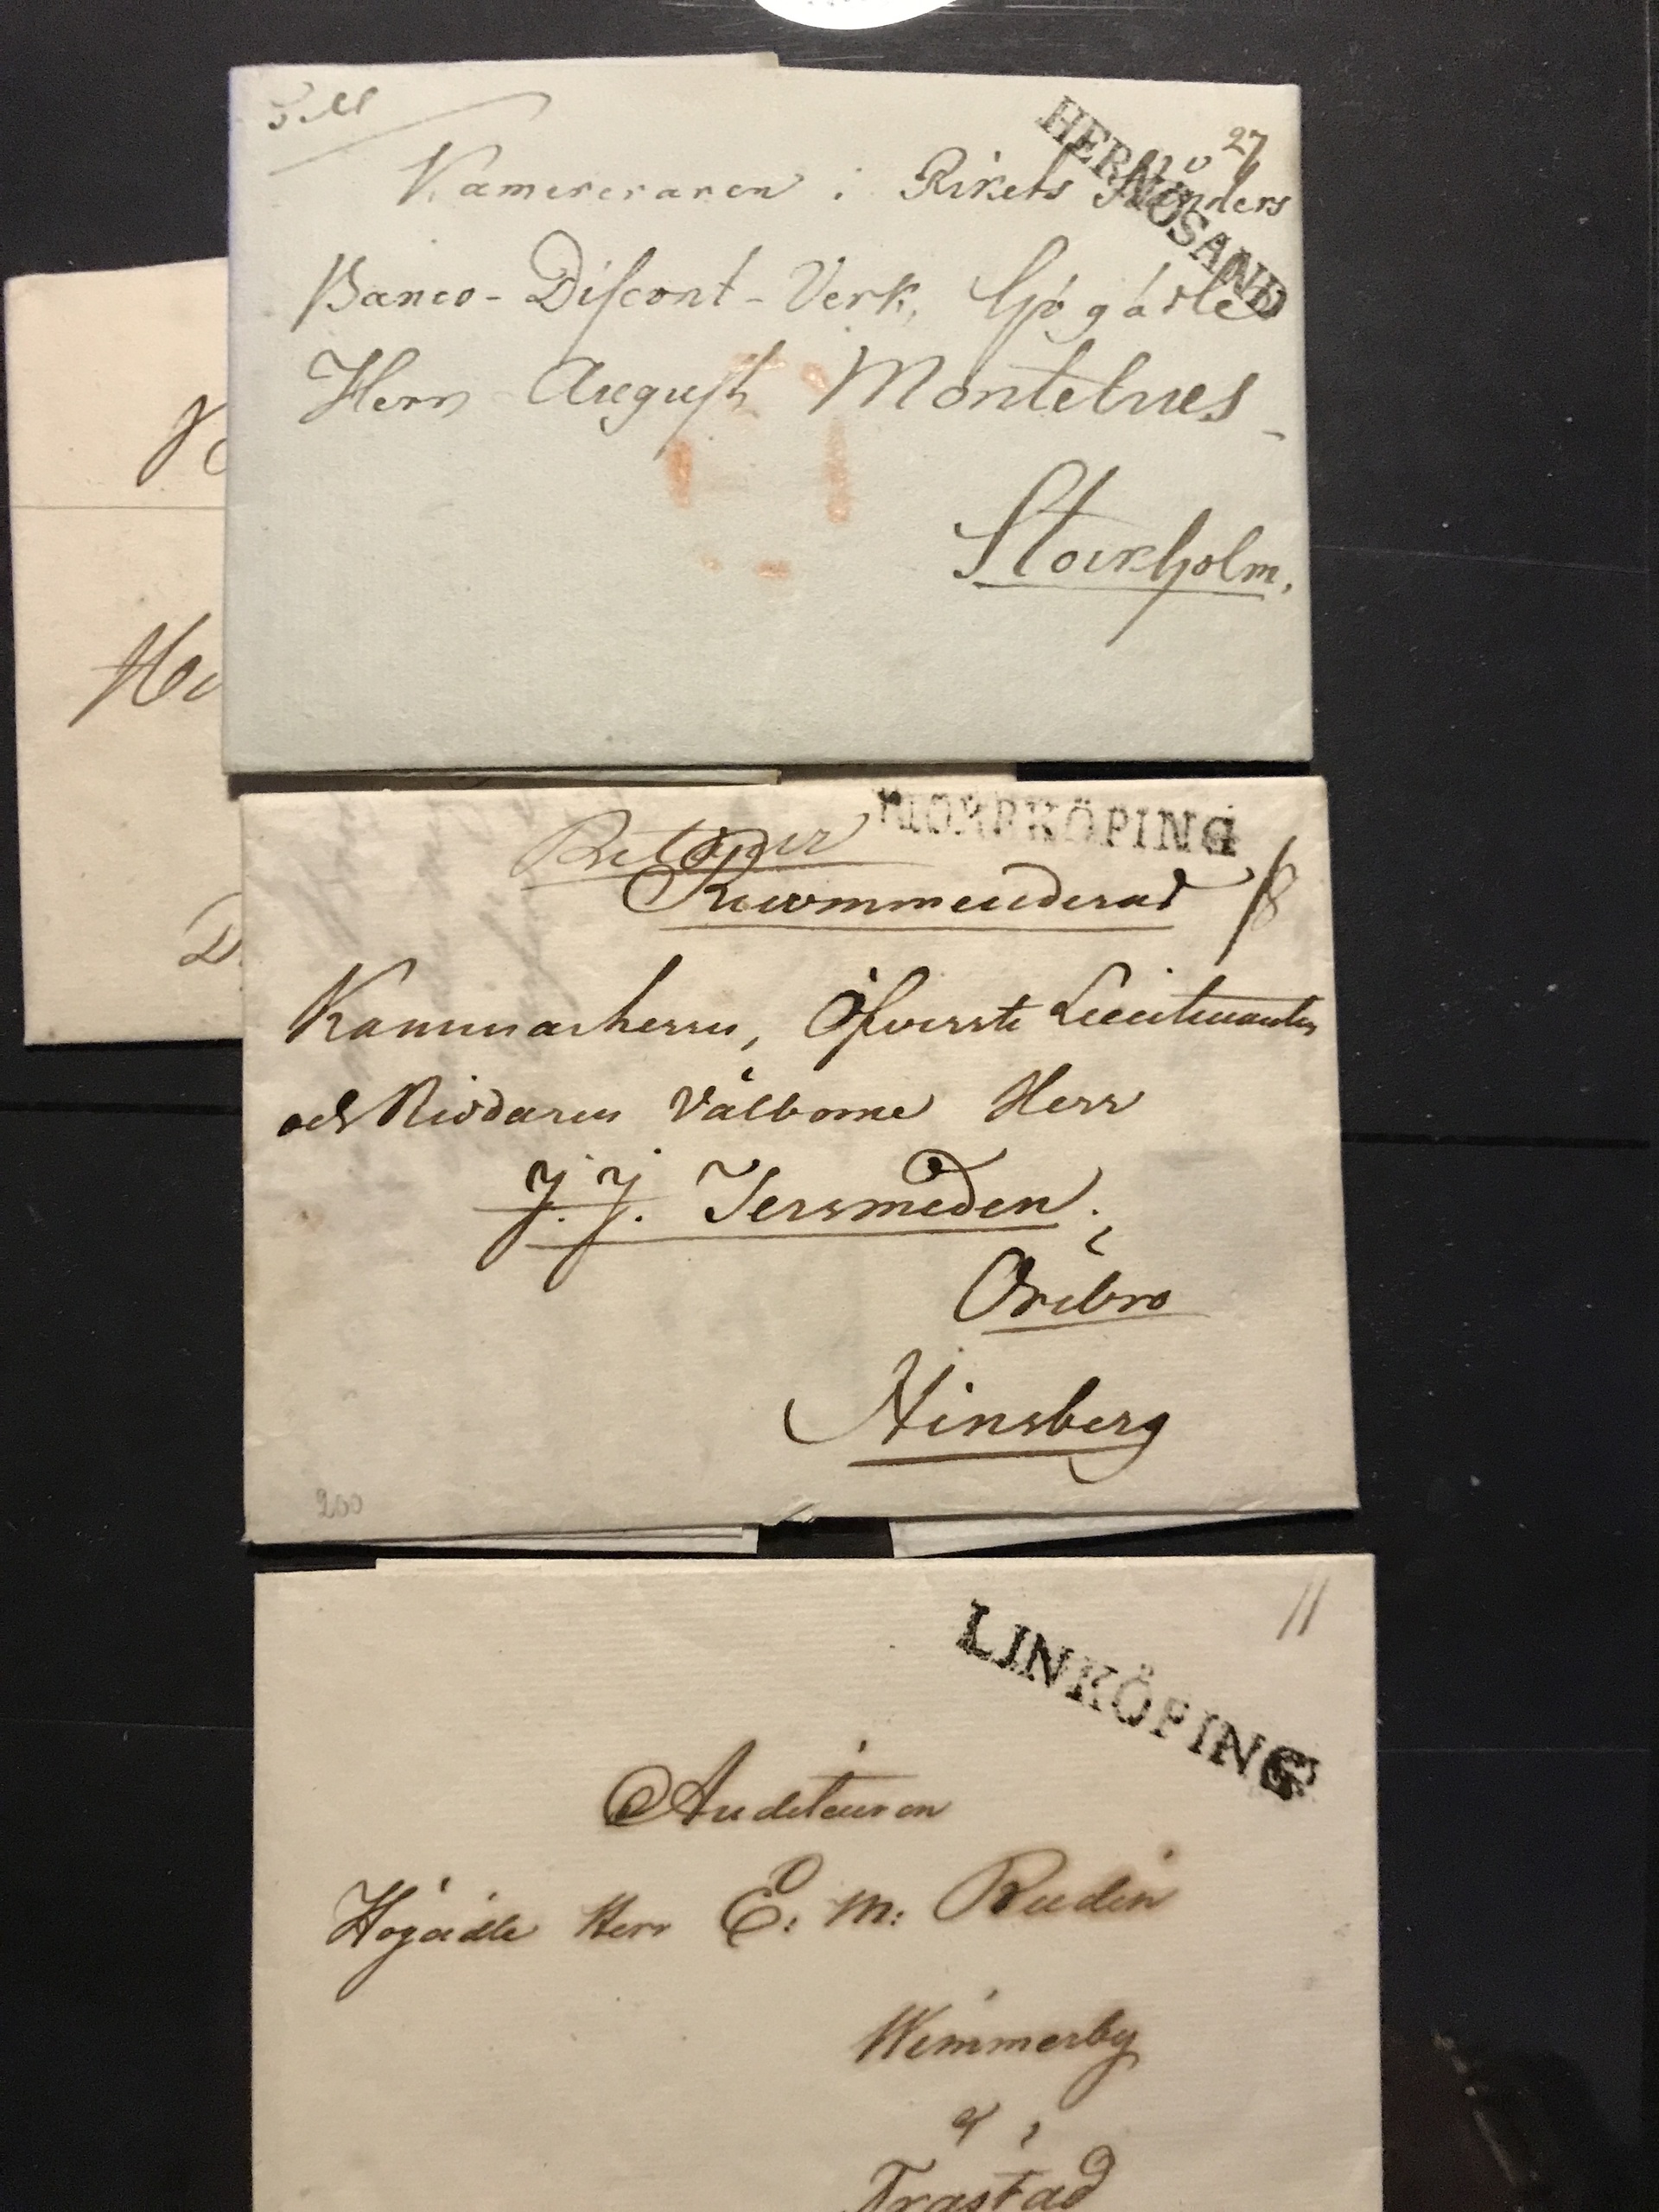 HERNÖSAND
27
Kamereraren i Rikets Ständers
Banco-Discont-Verk,
Herr August Montelius
Stockholm.
He
D
NORRKÖPING
Recommenderad
Kammarherren, Öfverste Lieutenanten
och Riddaren Välborne Herr
J. J. Jersmeden.
Örebro
Hinsberg
200
LINKÖPING
11
Auditeuren
Högädle Herr E: M: Rudin
Wimmerby
&
Frastad